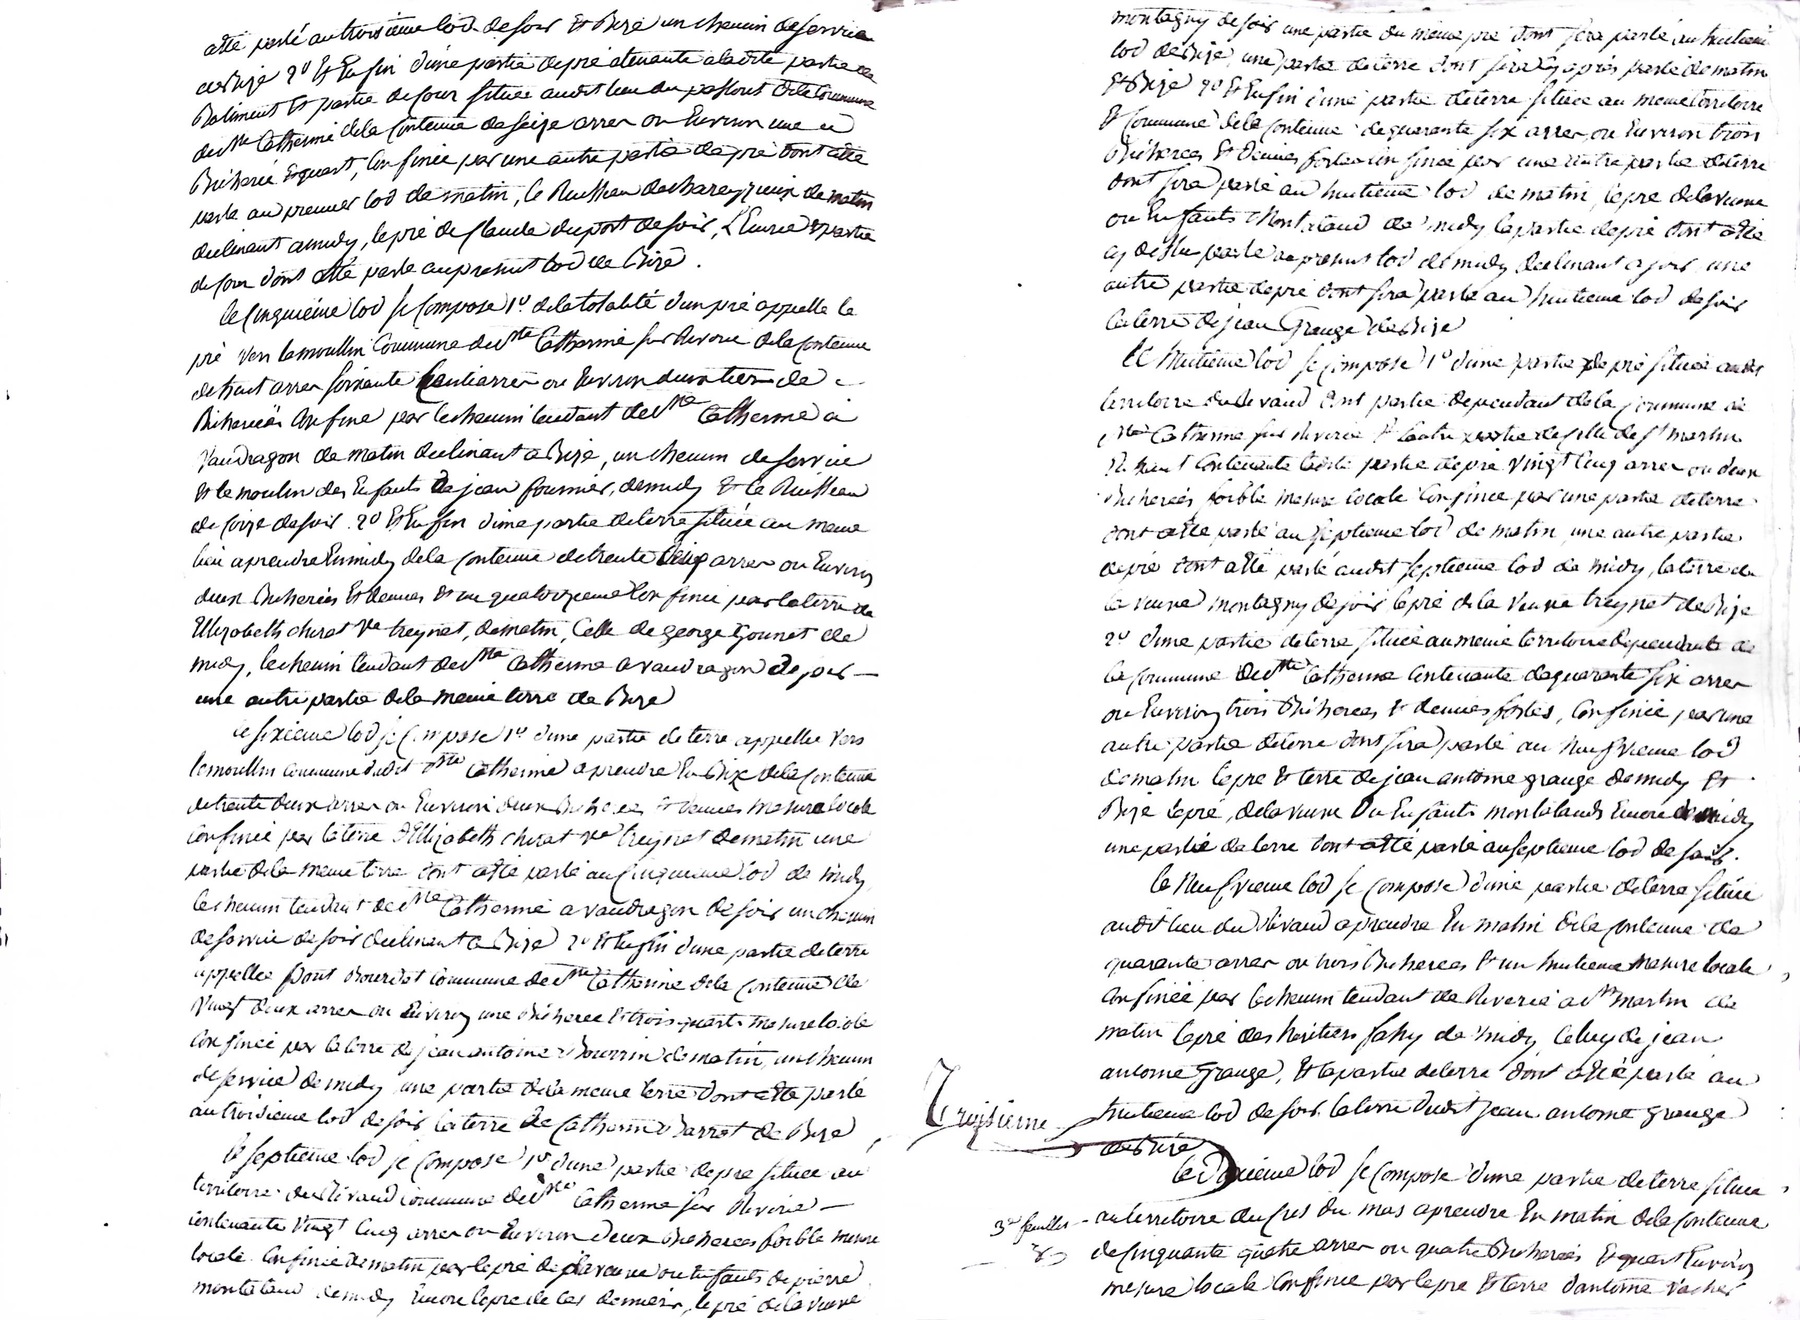 atté parlé au troisième lod de soir Et Bize un chemin de service
de Bize 2° Et Enfin d'une partie de pré atenante a ladite partie de
Batiment Et partie de cour située audit lieu du passout de la Commune
de Ste Catherine de la Contenue de seize arres ou Environ une
Bicherée Equart, Confinée par une autre partie de pré dont atté
parlé au premier lod de matin, le Ruisseau de de matin
declinant a midy, le pré de Claude duport de soir, L'Ecurie Et partie
de cour dont atté parlé au présent lod de Bize.
Le Cinquième lod se Compose 1° de la totalité d'un pré appellé le
pré vers le moullin Commune de Ste Catherine sur Riverie de la Contenue
de huit arres soixante Centiarres ou Environ deux tiers de
Bicherées Confiné par le chemin tendant de Ste Catherine a
vaudragon de matin declinant a Bize, un chemin de service
Et le moulin des Enfants de jean fournier, de midy Et le Ruisseau
de de soir 2° Et Enfin d'une partie de terre située au meme
lieu a prendre En midy de la Contenue de trente arres ou Environ
deux Bicherées Et demies Et un quatorzieme Confinée par la terre de
Ellizabeth cherat Ve treynet, de matin, Celle de george Gounet de
midy, le chemin tendant de Ste Catherine a vaudragon de soir —
une autre partie de la meme terre de Bize
Le sixieme lod se Compose 1° d'une partie de terre appellée vers
le moullin commune dudit Ste Catherine a prendre En Bize de la Contenue
de trente deux arres ou Environ deux Bicherées Et demies mesure locale
Confinée par la terre d'Ellizabeth cherat Ve treynet de matin une
partie de la meme terre dont atté parlé au Cinquieme lod de midy
le chemin tendant de Ste Catherine a vaudragon de soir un chemin
de service de soir declinant a Bize 2° Et Enfin d'une partie de terre
appellée pont Bourdet Commune de Ste Catherine de la Contenue de
vingt deux arres ou Environ une Bicherée Et trois quarts mesure locale
Confinée par la terre de jean antoine Bourrin de matin, un chemin
de service de midy une partie de la meme terre dont atté parlé
au troisieme lod de soir la terre de Catherine Barret de Bize
Le septieme lod se Compose 1° d'une partie de pré située au
territoire du Rivaud Commune de Ste Catherine sur Riverie —
contenante vingt Cinq arres ou Environ deux Bicherées foible mesure
locale Confinée de matin par le pré de la veuve ou Enfants de pierre
montaland de midy Encore le pré de ces derniers, le pré de la veuve
montagny de soir une partie du meme pré dont sera parlé au huitieme
lod de Bize, une partie de terre dont sera cy après parlé de matin
Et Bize 2° Et Enfin d'une partie de terre située au meme territoire
Et Commune de la Contenue de quarante six arres, ou Environ trois
Bicherées Et demies fortes Confinée par une autre partie de terre
dont sera parlé au huitieme lod de matin, le pré de la veuve
ou Enfants Montaland de midy la partie de pré dont atté
cy dessus parlé au present lod de midy declinant a soir une
autre partie de pré dont sera parlé au huitieme lod de soir
la terre de jean Grange de Bize
Le huitieme lod se Compose 1° d'une partie de pré située audit
territoire du Rivaud dont partie dependant de la Commune de
Ste Catherine sur Riverie Et l'autre partie de celle de St martin
En haut Contenante ladite partie de pré vingt Cinq arres ou deux
Bicherées foible mesure locale Confinée par une partie de terre
dont atté parlé au septieme lod de matin, une autre partie
de pré dont atté parlé audit septieme lod de midy, la terre de
la veuve montagny de soir le pré de la veuve treynet de Bize
2° d'une partie de terre située au meme territoire dependante de
la Commune de Ste Catherine Contenante de quarante six arres
ou Environ trois Bicherées Et demies fortes, Confinée par une
autre partie de terre dont sera parlé au Neufvieme lod
de matin le pré Et terre de jean antoine grange de midy Et
Bize le pré, de la veuve Ou Enfants montaland Encore de midy
une partie de terre dont atté parlé au septieme lod de soir.
Le Neufvieme lod se Compose d'une partie de terre située
audit lieu du Rivaud a prendre En matin de la Contenue de
quarante arres ou trois Bicherées Et un huitieme mesure locale
Confinée par le chemin tendant de Riverie a St martin de
matin le pré des heritiers fahy de midy Celuy de jean
antoine Grange, Et la partie de terre dont atté parlé au
Troisieme huitieme lod de soir la terre dudit jean antoine grange
de Bize
Le Dixieme lod se Compose d'une partie de terre située
3eme feuillet - au territoire du Cres du mas a prendre En matin de la Contenue
de Cinquante quatre arres ou quatre Bicherées Et quart Environ
mesure locale Confinée par le pré Et terre d'antoine vacher